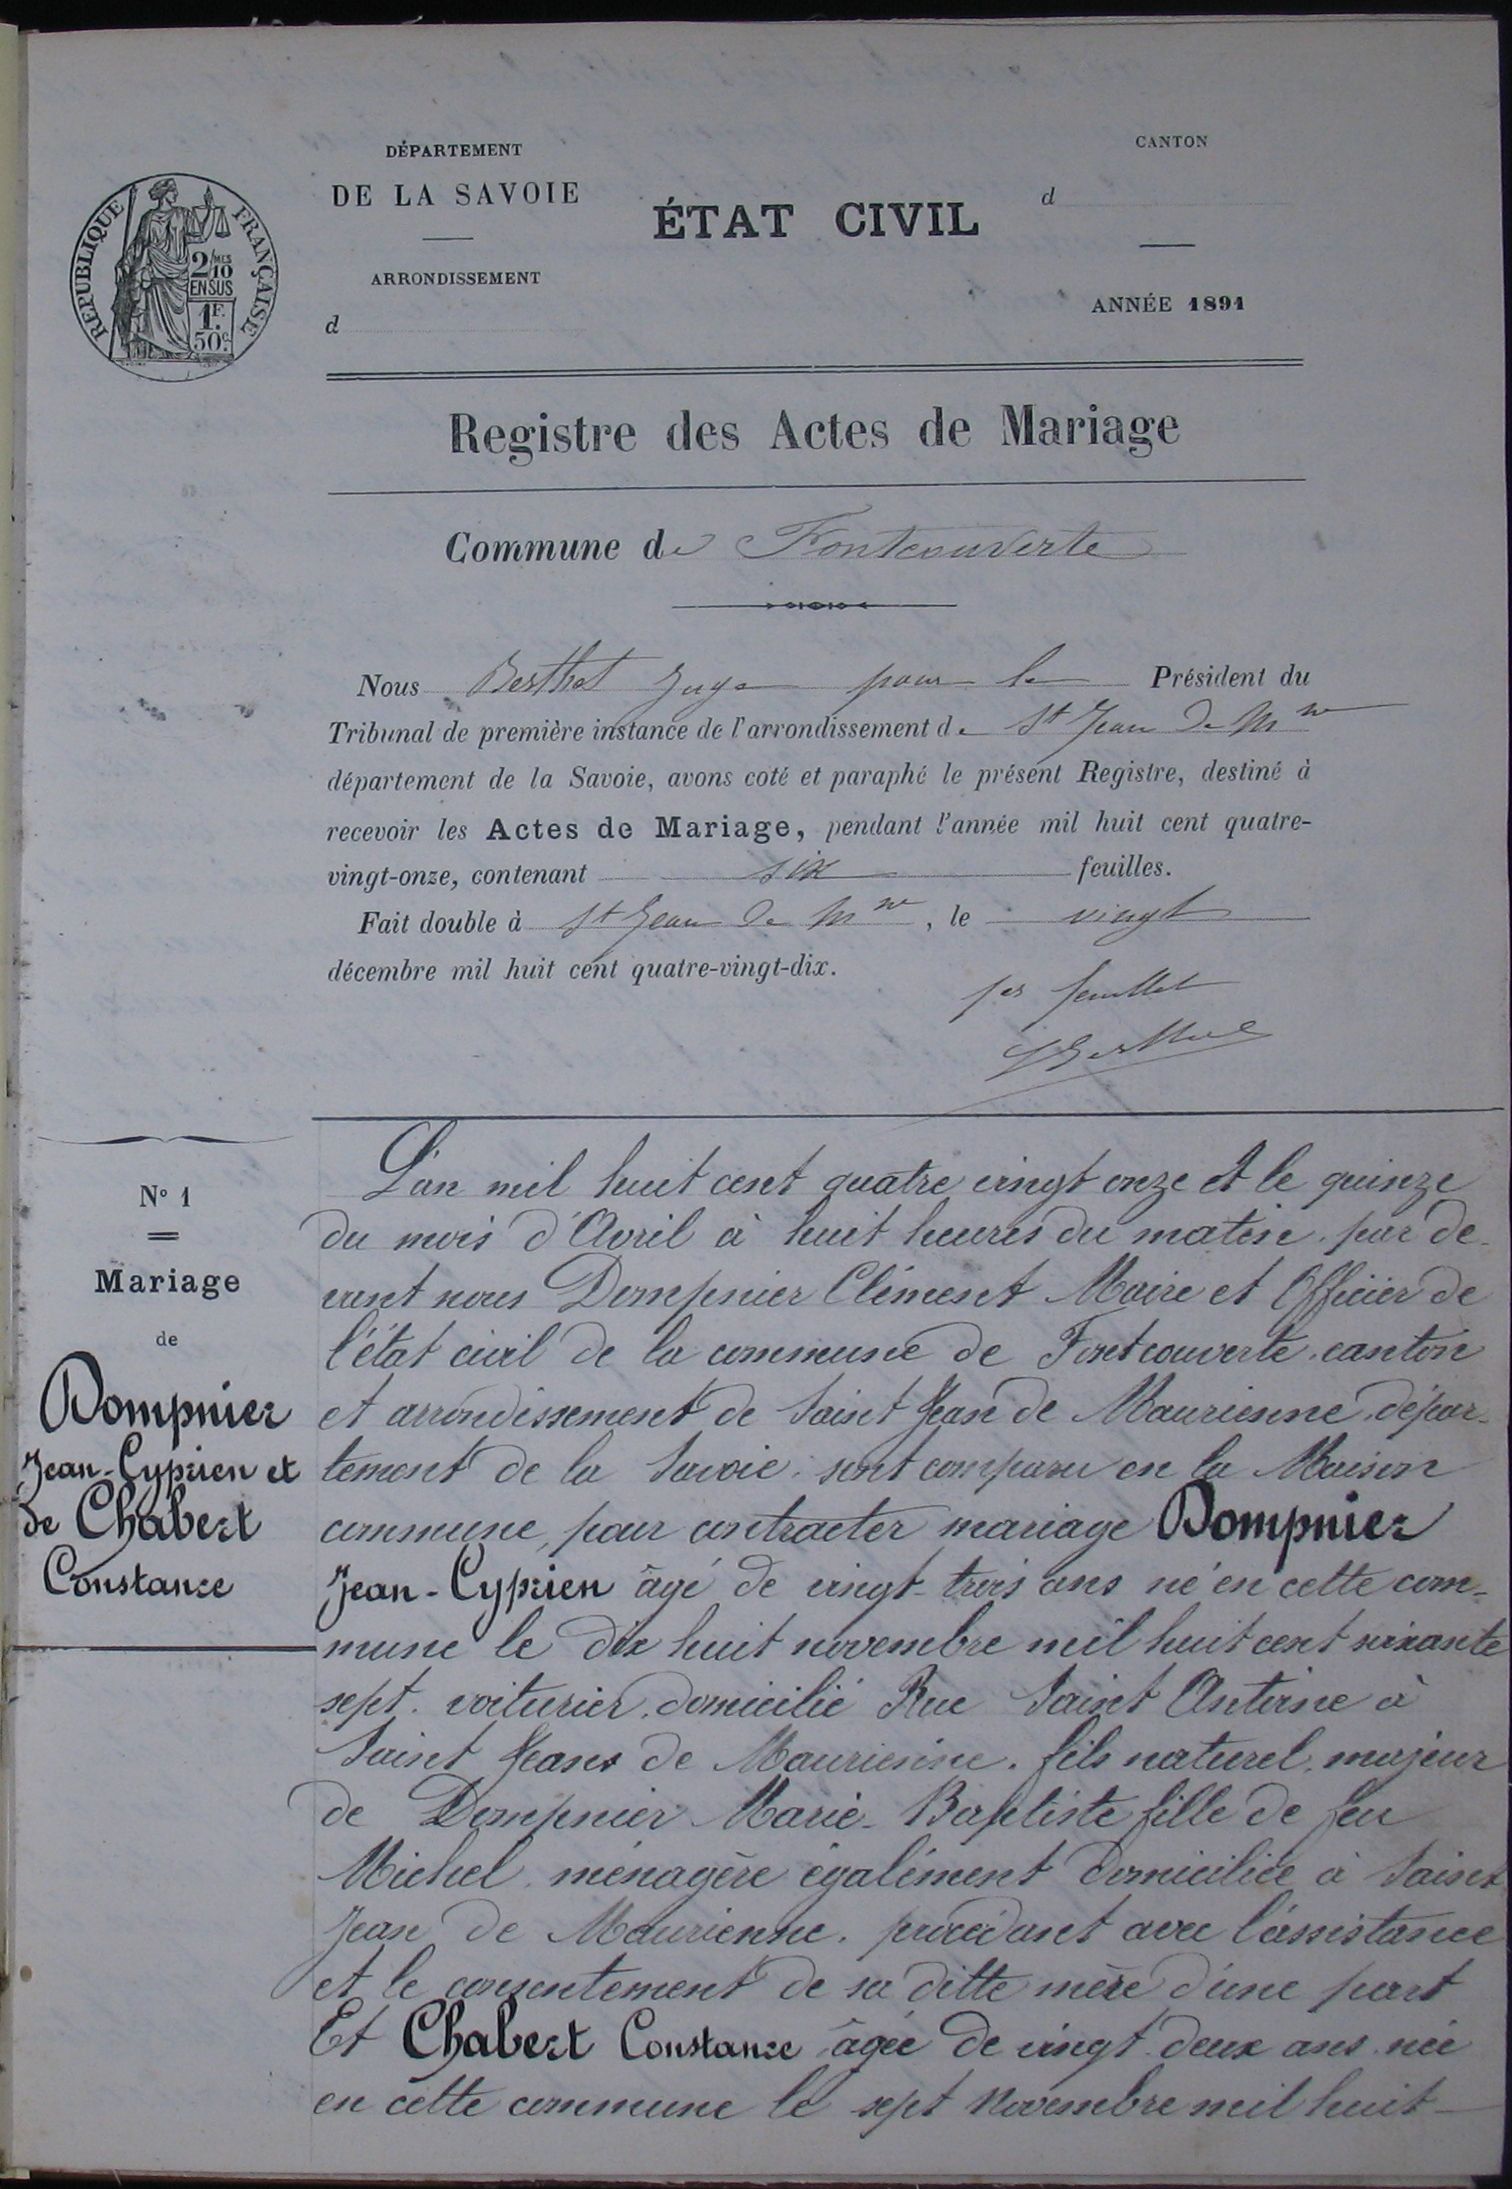 DÉPARTEMENT
DE LA SAVOIE
ARRONDISSEMENT
d
ÉTAT CIVIL
CANTON
d
ANNÉE 1891
RÉPUBLIQUE FRANÇAISE
2/10 MES
EN SUS
1F.
50c.
Registre des Actes de Mariage
Commune de Fontcouverte
Nous Berthet Juge pour le Président du
Tribunal de première instance de l'arrondissement de St Jean de Mne
département de la Savoie, avons coté et paraphé le présent Registre, destiné à
recevoir les Actes de Mariage, pendant l'année mil huit cent quatre-
vingt-onze, contenant six feuilles.
Fait double à St Jean de Mne, le vingt
décembre mil huit cent quatre-vingt-dix.
1er feuillet
Berthet
N° 1
Mariage
de
Dompnier
Jean-Cyprien et
de Chabert
Constance
L'an mil huit cent quatre vingt onze et le quinze
du mois d'Avril à huit heures du matin. par de-
vant nous Dompnier Clément Maire et Officier de
l'état civil de la commune de Fontcouverte. canton
et arrondissement de Saint Jean de Maurienne, dépar-
tement de la Savoie. sont comparu en la Maison
commune, pour contracter mariage Dompnier
Jean-Cyprien âgé de vingt-trois ans né en cette com-
mune le dix huit novembre mil huit cent soixante
sept. voiturier. domicilié Rue Saint Antoine à
Saint Jean de Maurienne. fils naturel, majeur
de Dompnier Marie-Baptiste fille de feu
Michel. ménagère également domiciliée à Saint
Jean de Maurienne. procédant avec l'assistance
et le consentement de sa ditte mère d'une part
Et Chabert Constance âgée de vingt-deux ans. née
en cette commune le sept Novembre mil huit